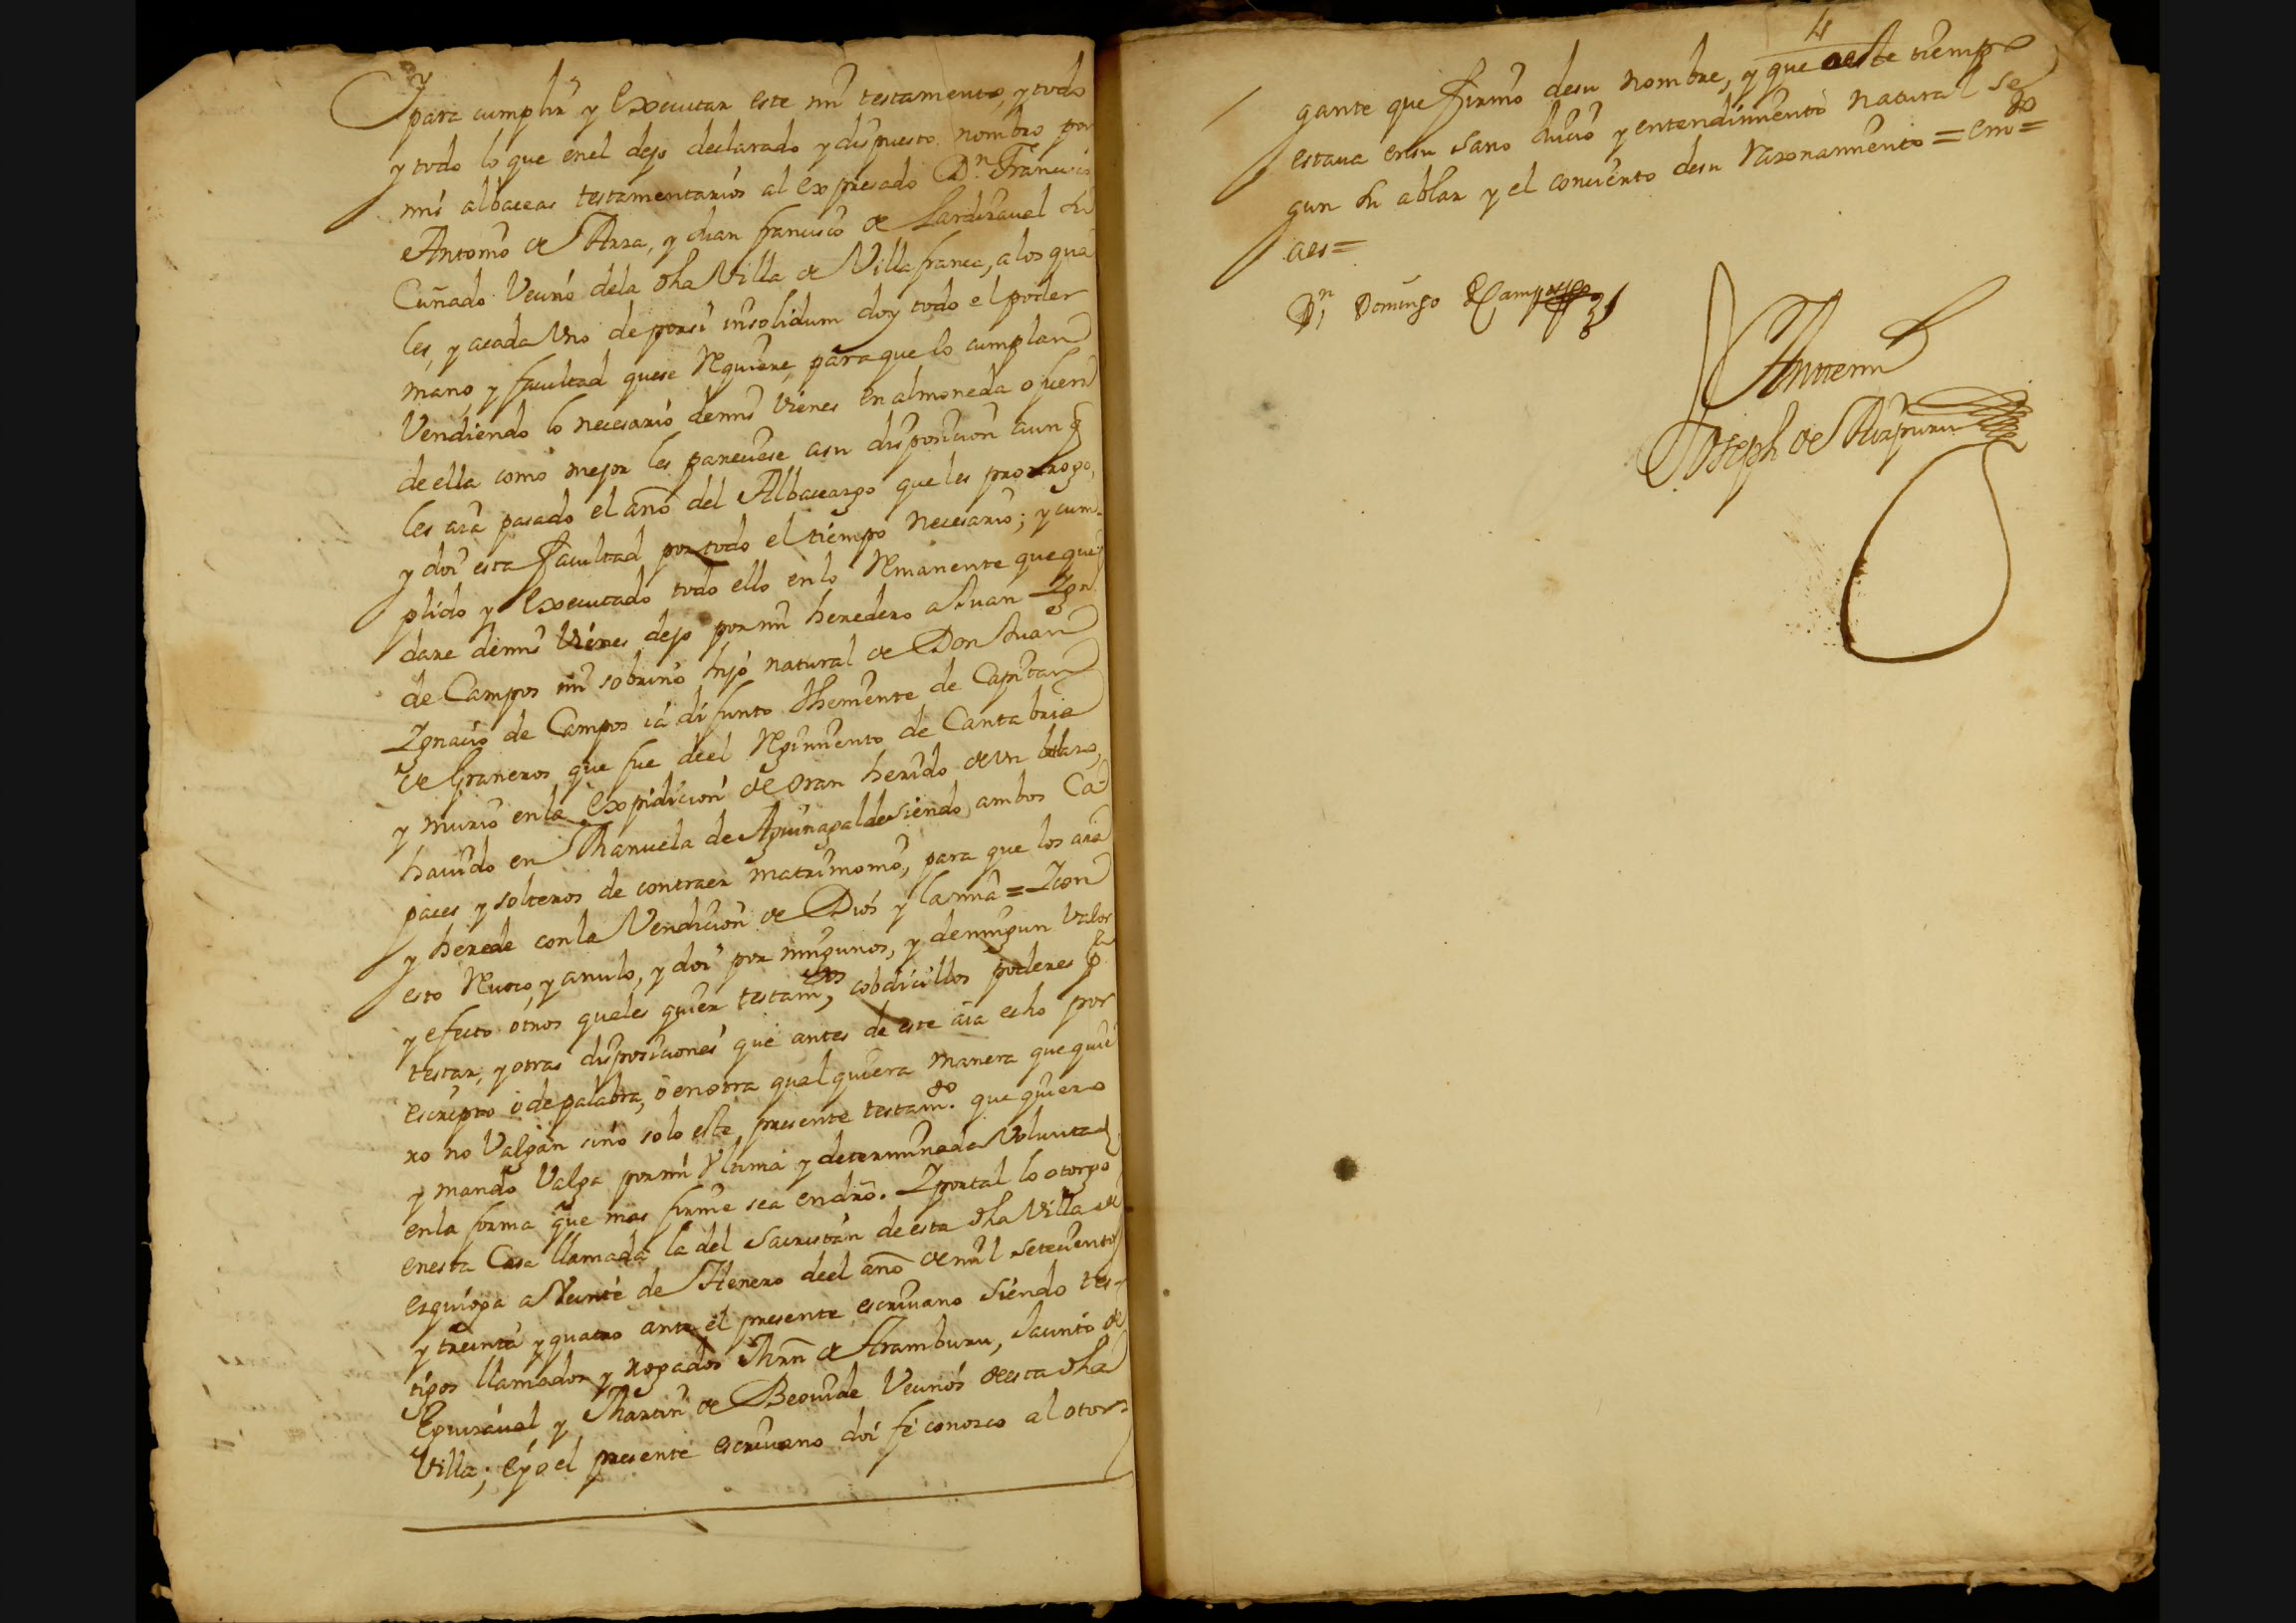 Y para cumplir y Executar este mi testamento, y todo
y todo lo que enel dejo declarado y dispuesto nombro por
mis albaceas testamentarios al Expresado Dn. Francisco
Antonio de Arza, y Juan francisco de Lardizaual
Cuñado Vecino dela dha Villa de Villafranca, a los qua
les, y acada Vno de porsi insolidum doy todo el poder
mano, y facultad quese Requiere, para que lo cumplan
Vendiendo lo necesario demis Vienes en almoneda o fuera
de ella como mejor les pareciese asu disposicion aunq
les aia pasado el año del Albaceazgo que les prorrogo,
y doi esta facultad por todo el tiempo necesario; y cum-
plido y Executado todo ello enlo Remanente que que
dare demis Vienes dejo por mi heredero a Juan Ign
de Campos mi sobrino hijo natural de Don Juan
Ignacio de Campos ia difunto theniente de Capitan
de Graneros que fue deel Regimiento de Cantabria
y murio en la Expidicion de Oran herido de vn balazo,
hauido en Manuela de Aguinagalde siendo ambos Ca-
paces y solteros de contraer matrimonio, para que los aia
y herede con la Vendicion de Dios y la mia = Y con
esto Reuoco, y anulo, y doi por ningunos, y de ningun valor
y efecto otros quales quier testamtos, cobdicillos poderes pa
testar, y otras disposiciones que antes de este aia echo por
escripto o de palabra, o en otra qualquiera manera que quie
ro no Valgan sino solo este presente testamto. que quiero
y mando Valga por mi Vltima y determinada Voluntad
enla forma que mas firme sea endro. Y portal lo otorgo
enesta Casa llamada la del Sacristan de esta dha Villa de
ezquioga a Veinte de Henero deel año de mil setecientos
y treinta y quatro ante el presente escriuano siendo tes-
tigos llamados y rogados Mrn de Aramburu, Jacinto de
Eguizaual y Martin de Beguide Vecinos de esta dha
Villa; e yo el presente escriuano doi fe conozco al otor-
4
gante que firmo desu nombre, y que aeste tiempo
estaua ensu sano Juicio y entendimiento natural se
gun su ablar y el concierto desu razonamiento = emdo =
aes =
Dn Domingo de Campos
Antemi
Joseph de Aizpuru